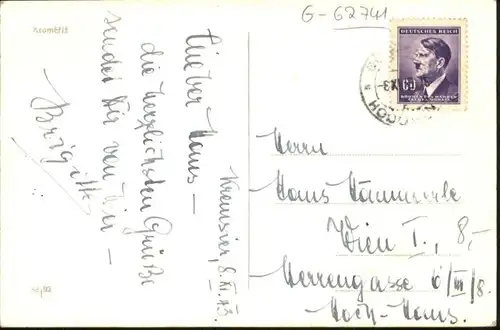 G-62741
Kroměříž
DEUTSCHES REICH
60
BÖHMEN UND MÄHREN
Kremsier, 8. XI. 43.
Lieber Hans –
die herzlichsten Grüße
sendet Dir von hier –
Brigitte
Herrn
Hans Hämmerle
Wien I., 8,-
Herrengasse 6/III/8.
Hoch-Haus.